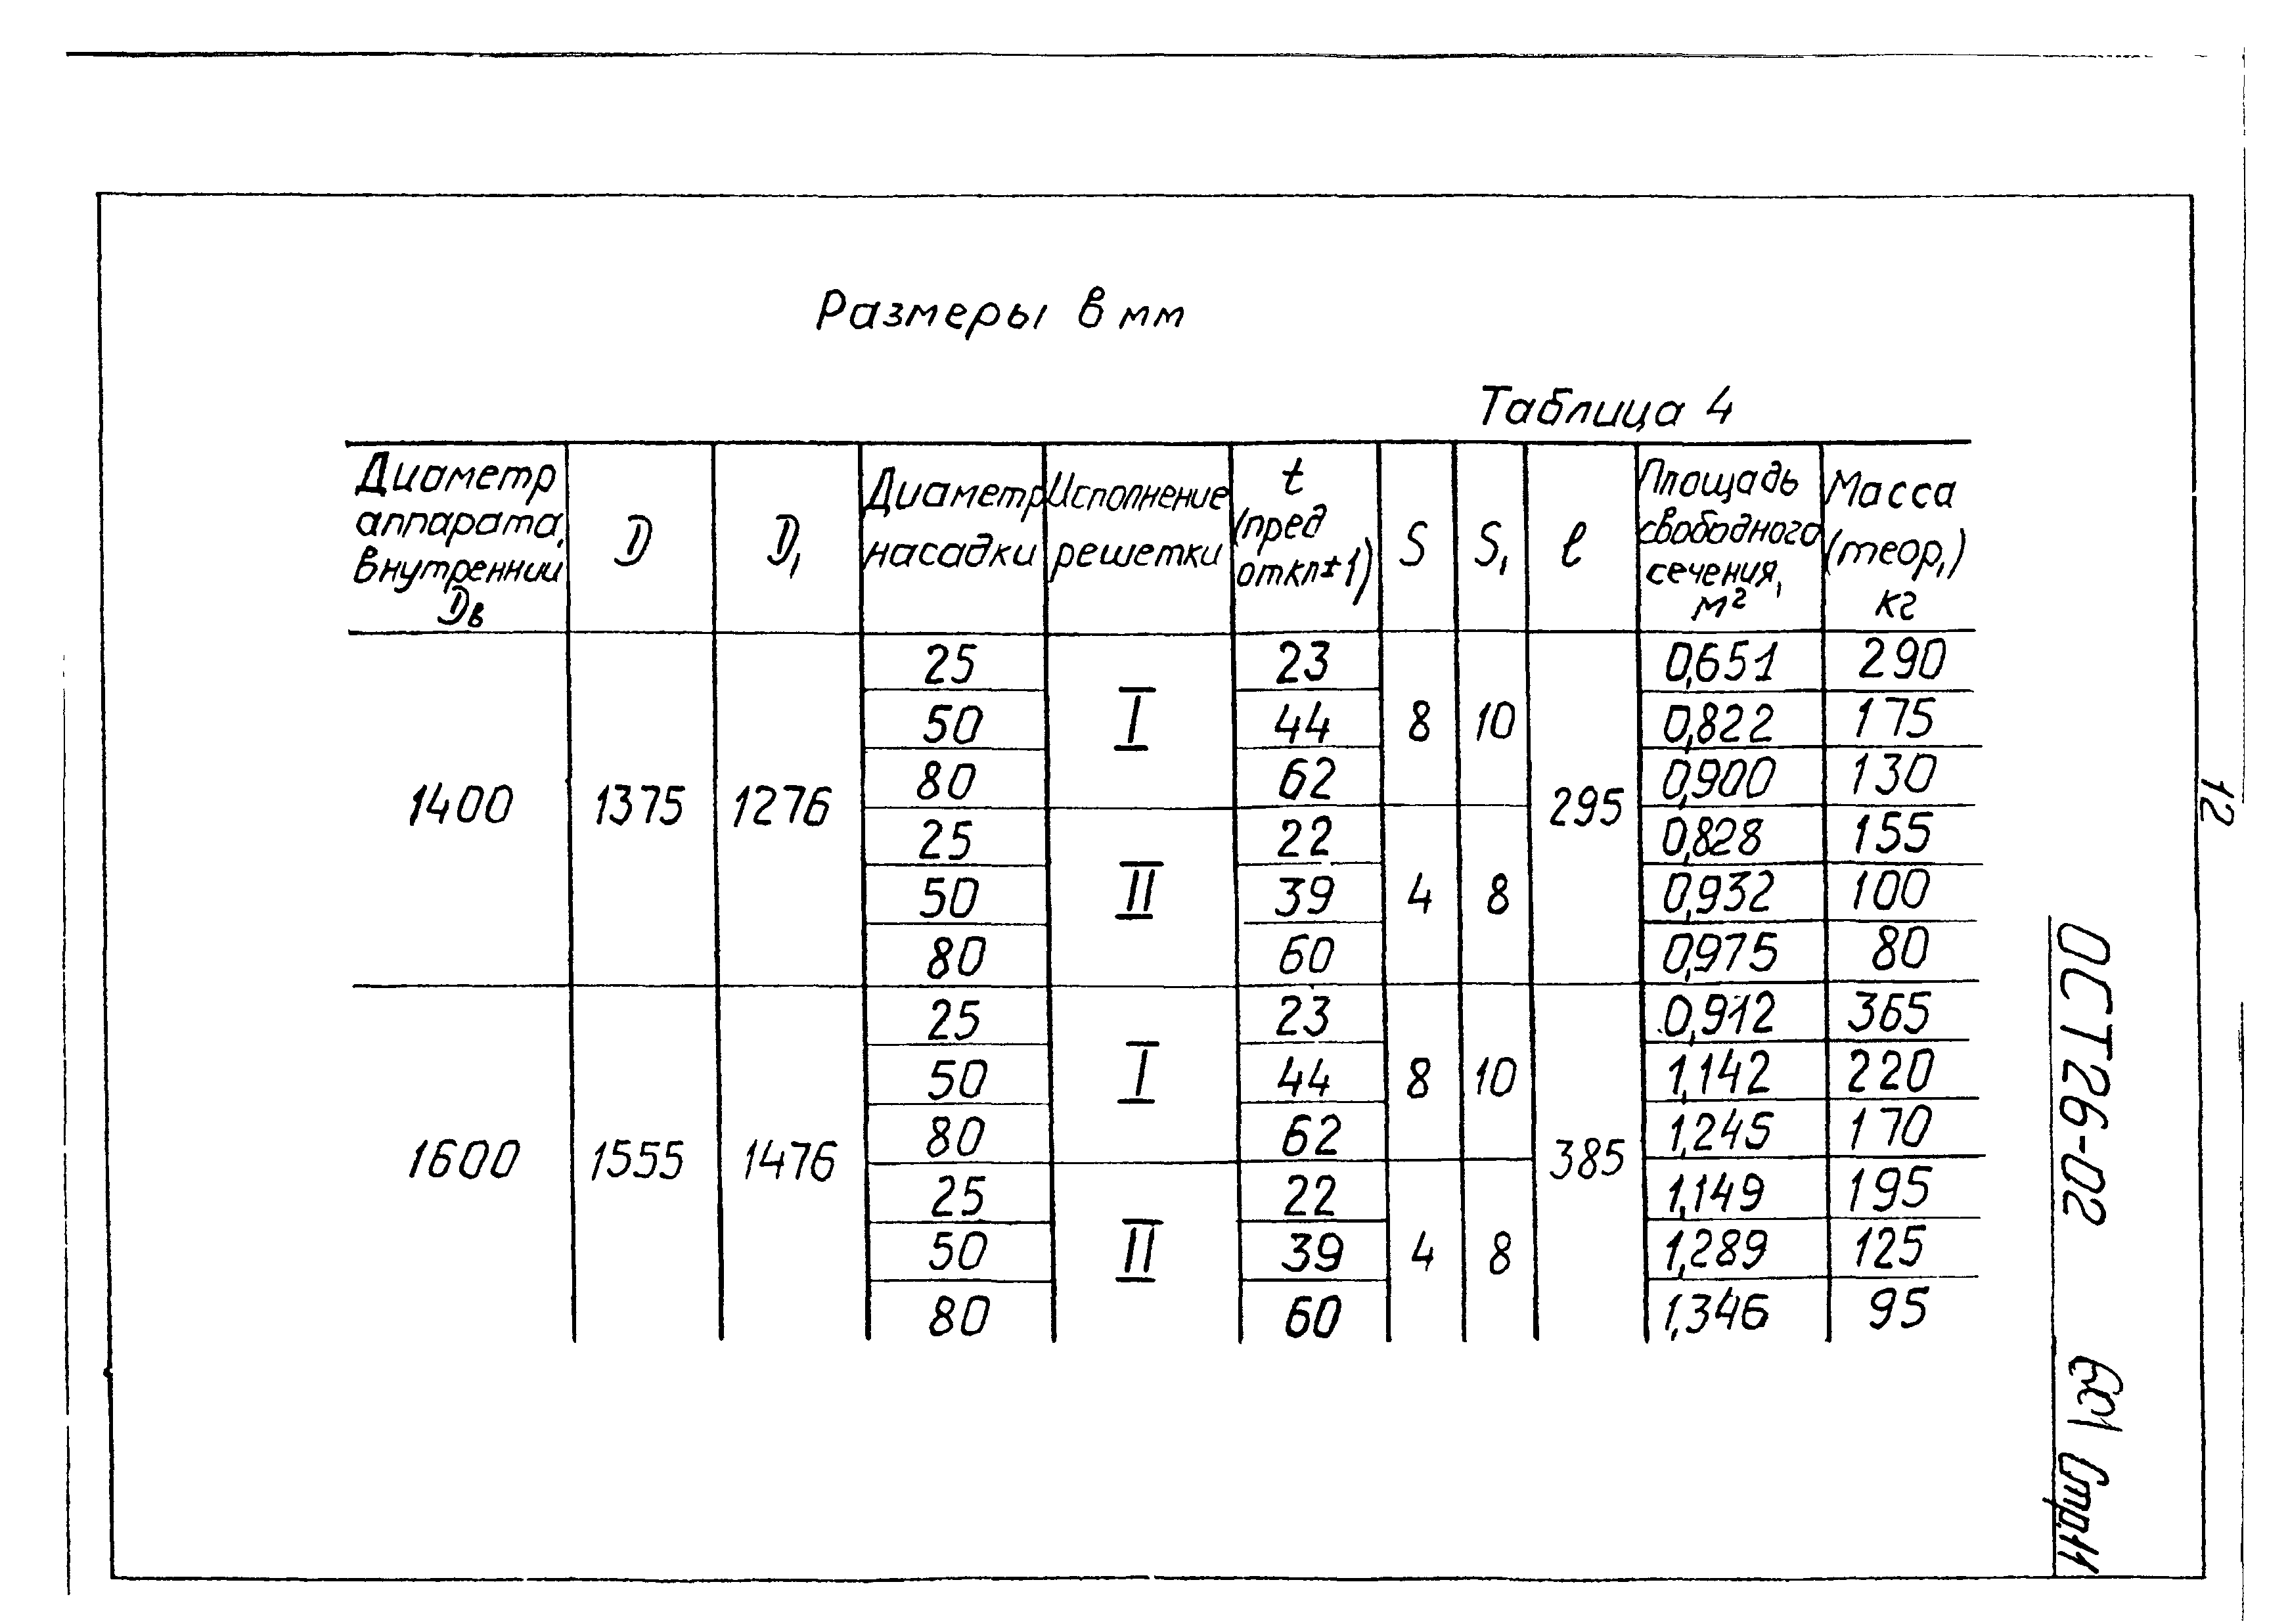 Размеры в мм
Таблица 4
Диаметр аппарата, внутренний Dв | D | D₁ | Диаметр насадки | Исполнение решетки | t (пред откл ± 1) | S | S₁ | ℓ | Площадь свободного сечения, м² | Масса (теор,) кг
1400 | 1375 | 1276 | 25 | I | 23 | 8 | 10 | 295 | 0,651 | 290
50 | 44 | 0,822 | 175
80 | 62 | 0,900 | 130
25 | II | 22 | 4 | 8 | 0,828 | 155
50 | 39 | 0,932 | 100
80 | 60 | 0,975 | 80
1600 | 1555 | 1476 | 25 | I | 23 | 8 | 10 | 385 | 0,912 | 365
50 | 44 | 1,142 | 220
80 | 62 | 1,245 | 170
25 | II | 22 | 4 | 8 | 1,149 | 195
50 | 39 | 1,289 | 125
80 | 60 | 1,346 | 95
12
ОСТ26-02
Стр.11